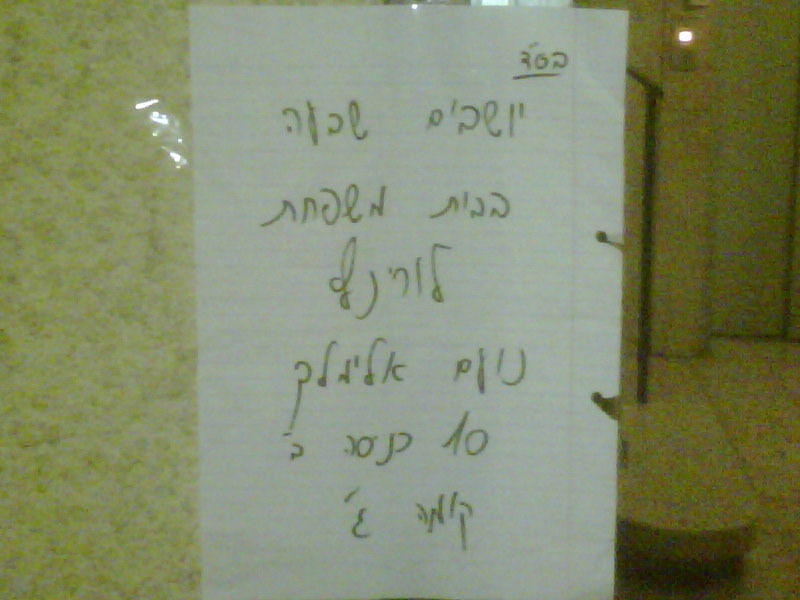 בס"ד
יושבים שבעה
בבית משפחת
נועם אלימלך
10 כניסה ב'
קומה ג'